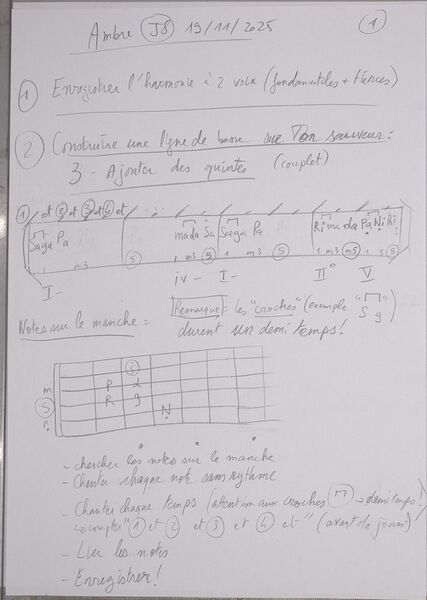 Ambre J8 19/11/2025 1
1 Enregistrer l'harmonie à 2 voix (fondamentales + tierces)
2 Construire une ligne de basse sur Ton sauveur :
3 - Ajouter des quintes (couplet)
1 et 2 et 3 et 4 et
Saga Pa mada Sa Saga Pa Ri ma da Pa Ni Ri
1 m3 5 1 m3 5 1 m3 5 1 m3 m5 1 3 5
I- iv- I- II° V
Remarque : les "croches" (exemple S g)
Notes sur le manche = durent un demi temps !
S
m P d
S R g
P. N
- chercher les notes sur le manche
- Chanter chaque note sans rythme
- Chanter chaque temps (attention aux croches → demi temps !
compter "1 et 2 et 3 et 4 et" (avant de jouer)
- Lier les notes
- Enregistrer !